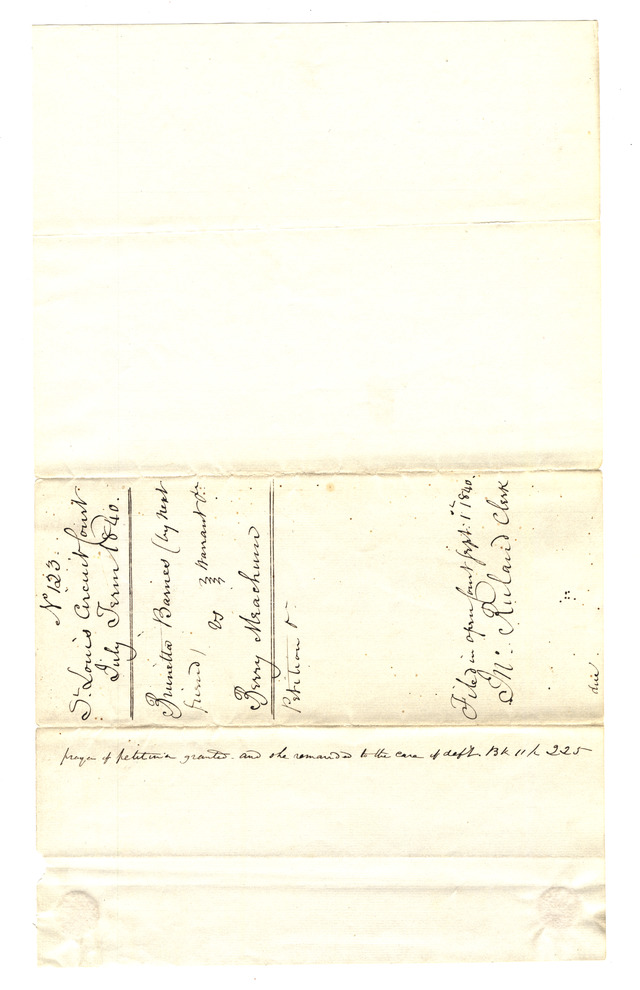 No 123.
St. Louis Circuit Court
July Term 1840.
Brunetta Barnes (by next
friend)
vs } Warrant &c
Berry Meachum
Petition &
Filed in open Court Sept. 1 1840.
Jno. Ruland Clerk
prayer of petitioner granted. and she remanded to the care of deft Bk 11 p 225